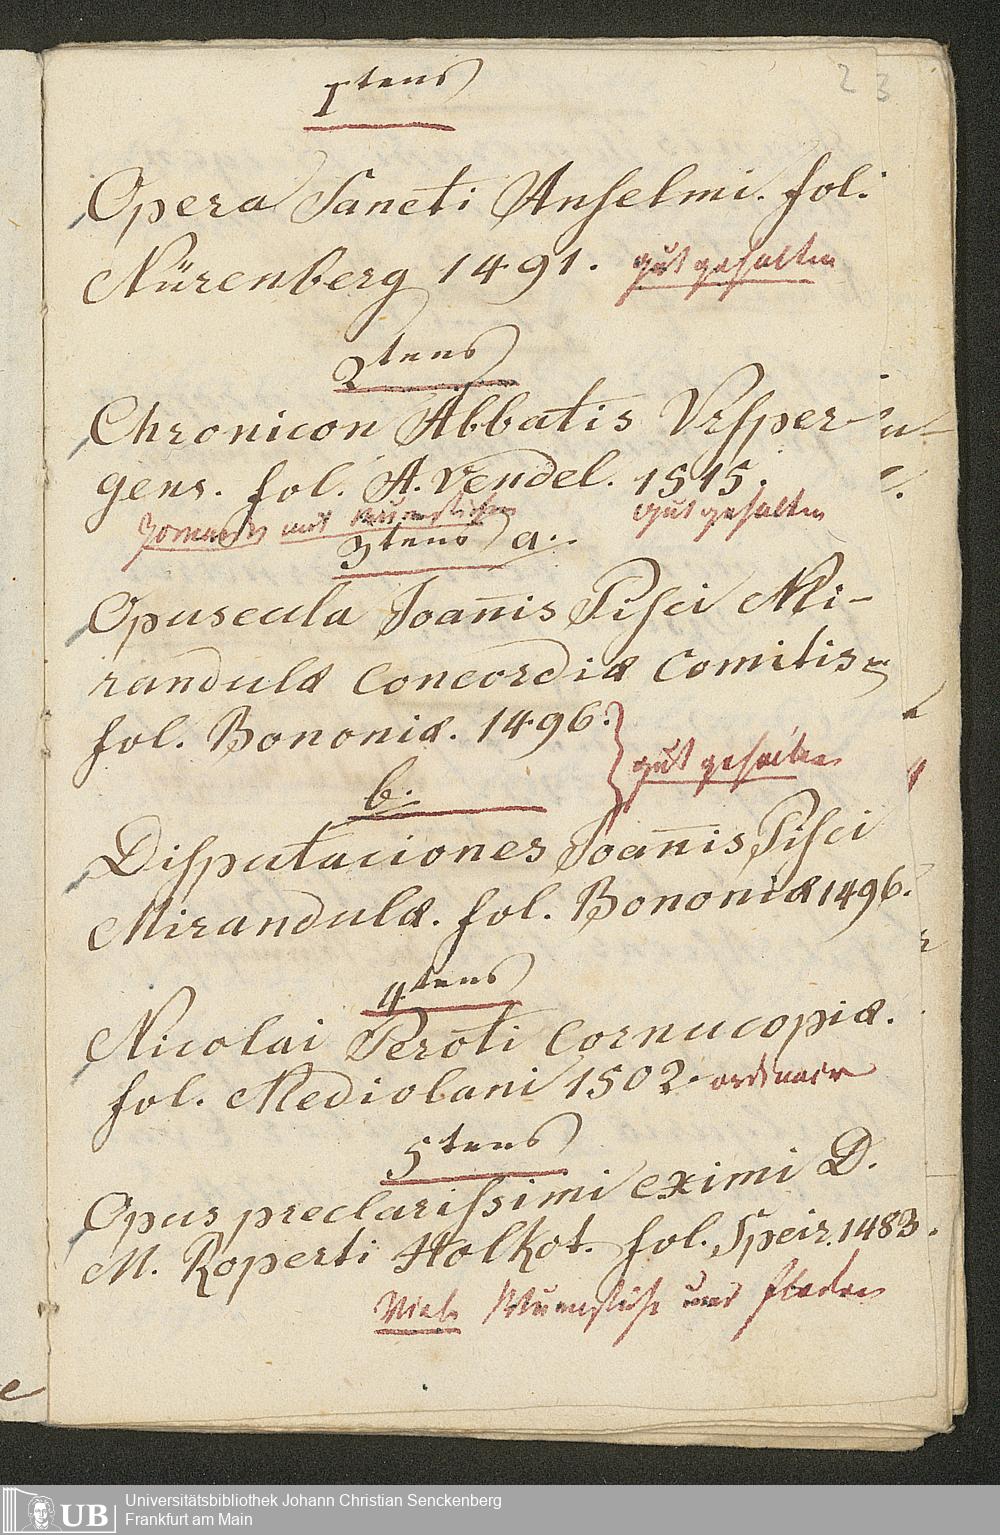 23
1tens
Opera Sancti Anselmi. fol.
Nürenberg 1491. gut gehalten
2tens
Chronicon Abbatis Vrsper-
gens. fol. A. Vendel. 1515.
mit Wurmstichen gut gehalten
3tens a.
Opuscula Joan̄is Pisci Mi-
randulæ Concordiæ Comitis
fol. Bononiæ. 1496.
gut gehalten
b.
Disputaciones Joan̄is Pisci
Mirandulæ. fol. Bononiæ 1496.
4tens
Nicolai Peroti Cornucopiæ.
fol. Mediolani 1502. ordinair
5tens
Opus preclarissimi eximi D.
M. Roperti Holkot. fol. Speir. 1483.
Viele Wurmstiche und Flecken
UB
Universitätsbibliothek Johann Christian Senckenberg
Frankfurt am Main